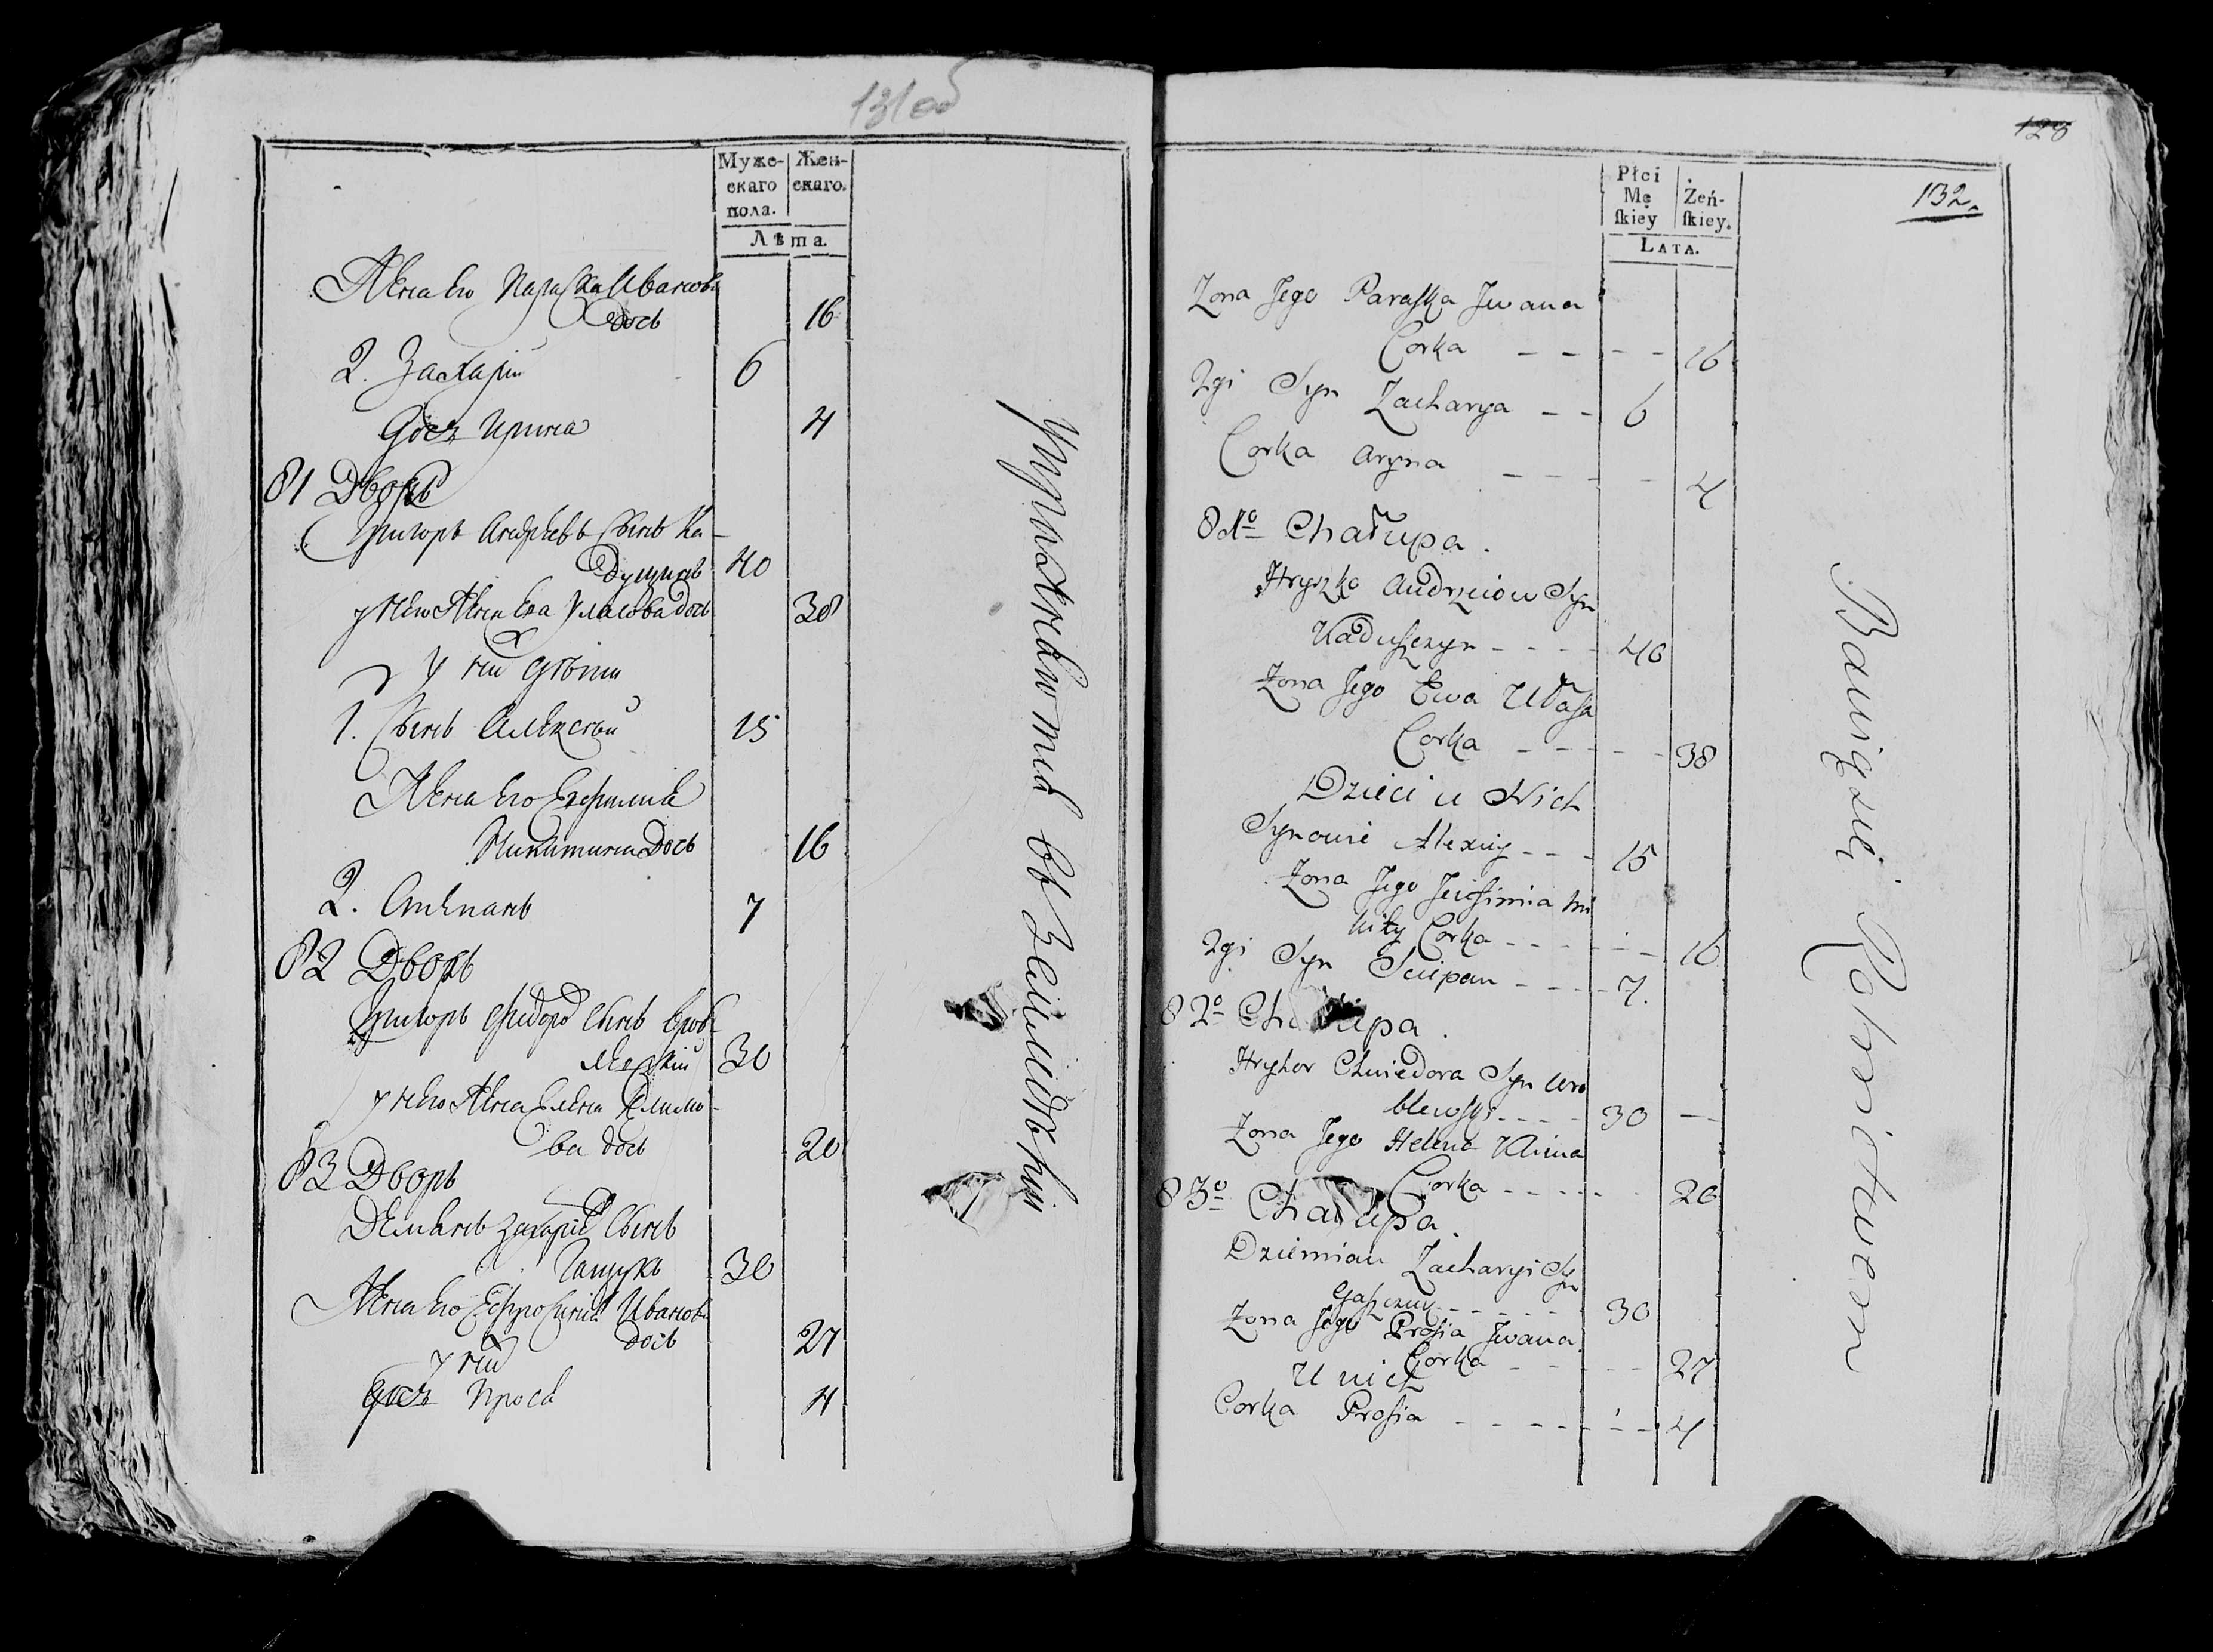 131об
Муже-
скаго
пола.
Жен-
скаго.
Лѣта.
Жена Его Параска Иванова
Дочь 16
2. Захарій 6
Дочь Ирина 4
81 Дворъ
Григорь Андреевъ Сынъ Ка-
душинъ 40
у Него Жена Ева Уласова Дочь 38
У ней Дѣти
1. Сынъ Алексѣй 15
Жена Его Евфимія
Никитина Дочь 16
2. Степанъ 7
82 Дворъ
Григорь Фидора Сынъ Вроб-
левскій 30
у Него Жена Елена Климо-
ва дочь 20
83 Дворъ
Демьянъ Захарія Сынъ
Гащукъ 30
Жена Его Ефросинія Иванова
дочь 27
у ней
Дочь Прося 4
въ
128
132.
Płci
Mę
ſkiey
Żeń-
ſkiey.
LATA.
Zona Jego Paraſka Jwana
Corka - - - - 16
2gi Syn Zacharya - - 6
Corka Aryna - - - - 4
81o Chałupa.
Hryszko Andrzeiow Syn
Kaduſzczyn - - - - 40
Zona Jego Ewa Ułaſa
Corka - - - - 38
Dzieci u Nich
Synowie Alexiy - - - 15
Zona Jego Jewfimia Mi
kity Corka - - - - 16
2gi Syn Sciepan - - - - 7.
82o Chałupa.
Hryhor Chwiedora Syn Wro
blewſki - - - - 30 —
Zona Jego Helena Klima
Corka - - - - - 20
83o Chałupa.
Dziemian Zacharyi Syn
Gaſzczuk - - - - - - 30
Zona Jego Proſia Jwana
Corka - - - - - 27
U nich
Corka Proſia - - - - - - - - 4